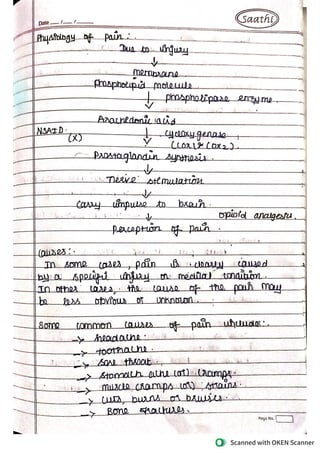 Date ___ / ___ / ______
Saathi
Physiology of pain :
Due to injury
↓
membrane
Phospholipid molecule
↓ phospholipase enzyme.
Arachedonic acid
NSAID. (X) ↓ cycloxygenase
(COX1 & COX2).
Prostaglandin synthesis.
↓
Nerve stimulation
↓
Carry impulse to brain.
↓ opioid analgesics.
perception of pain.
Causes:
In some cases, pain is clearly caused
by a specific injury or medical condition.
In other cases, the cause of the pain may
be less obvious or unknown.
Some common causes of pain include:
→ headache
→ Toothache
→ Sore throat
→ Stomach ache (or) cramps
→ muscle cramps (or) strains
→ Cuts, burns or bruises.
→ Bone fractures.
Page No.
Scanned with OKEN Scanner